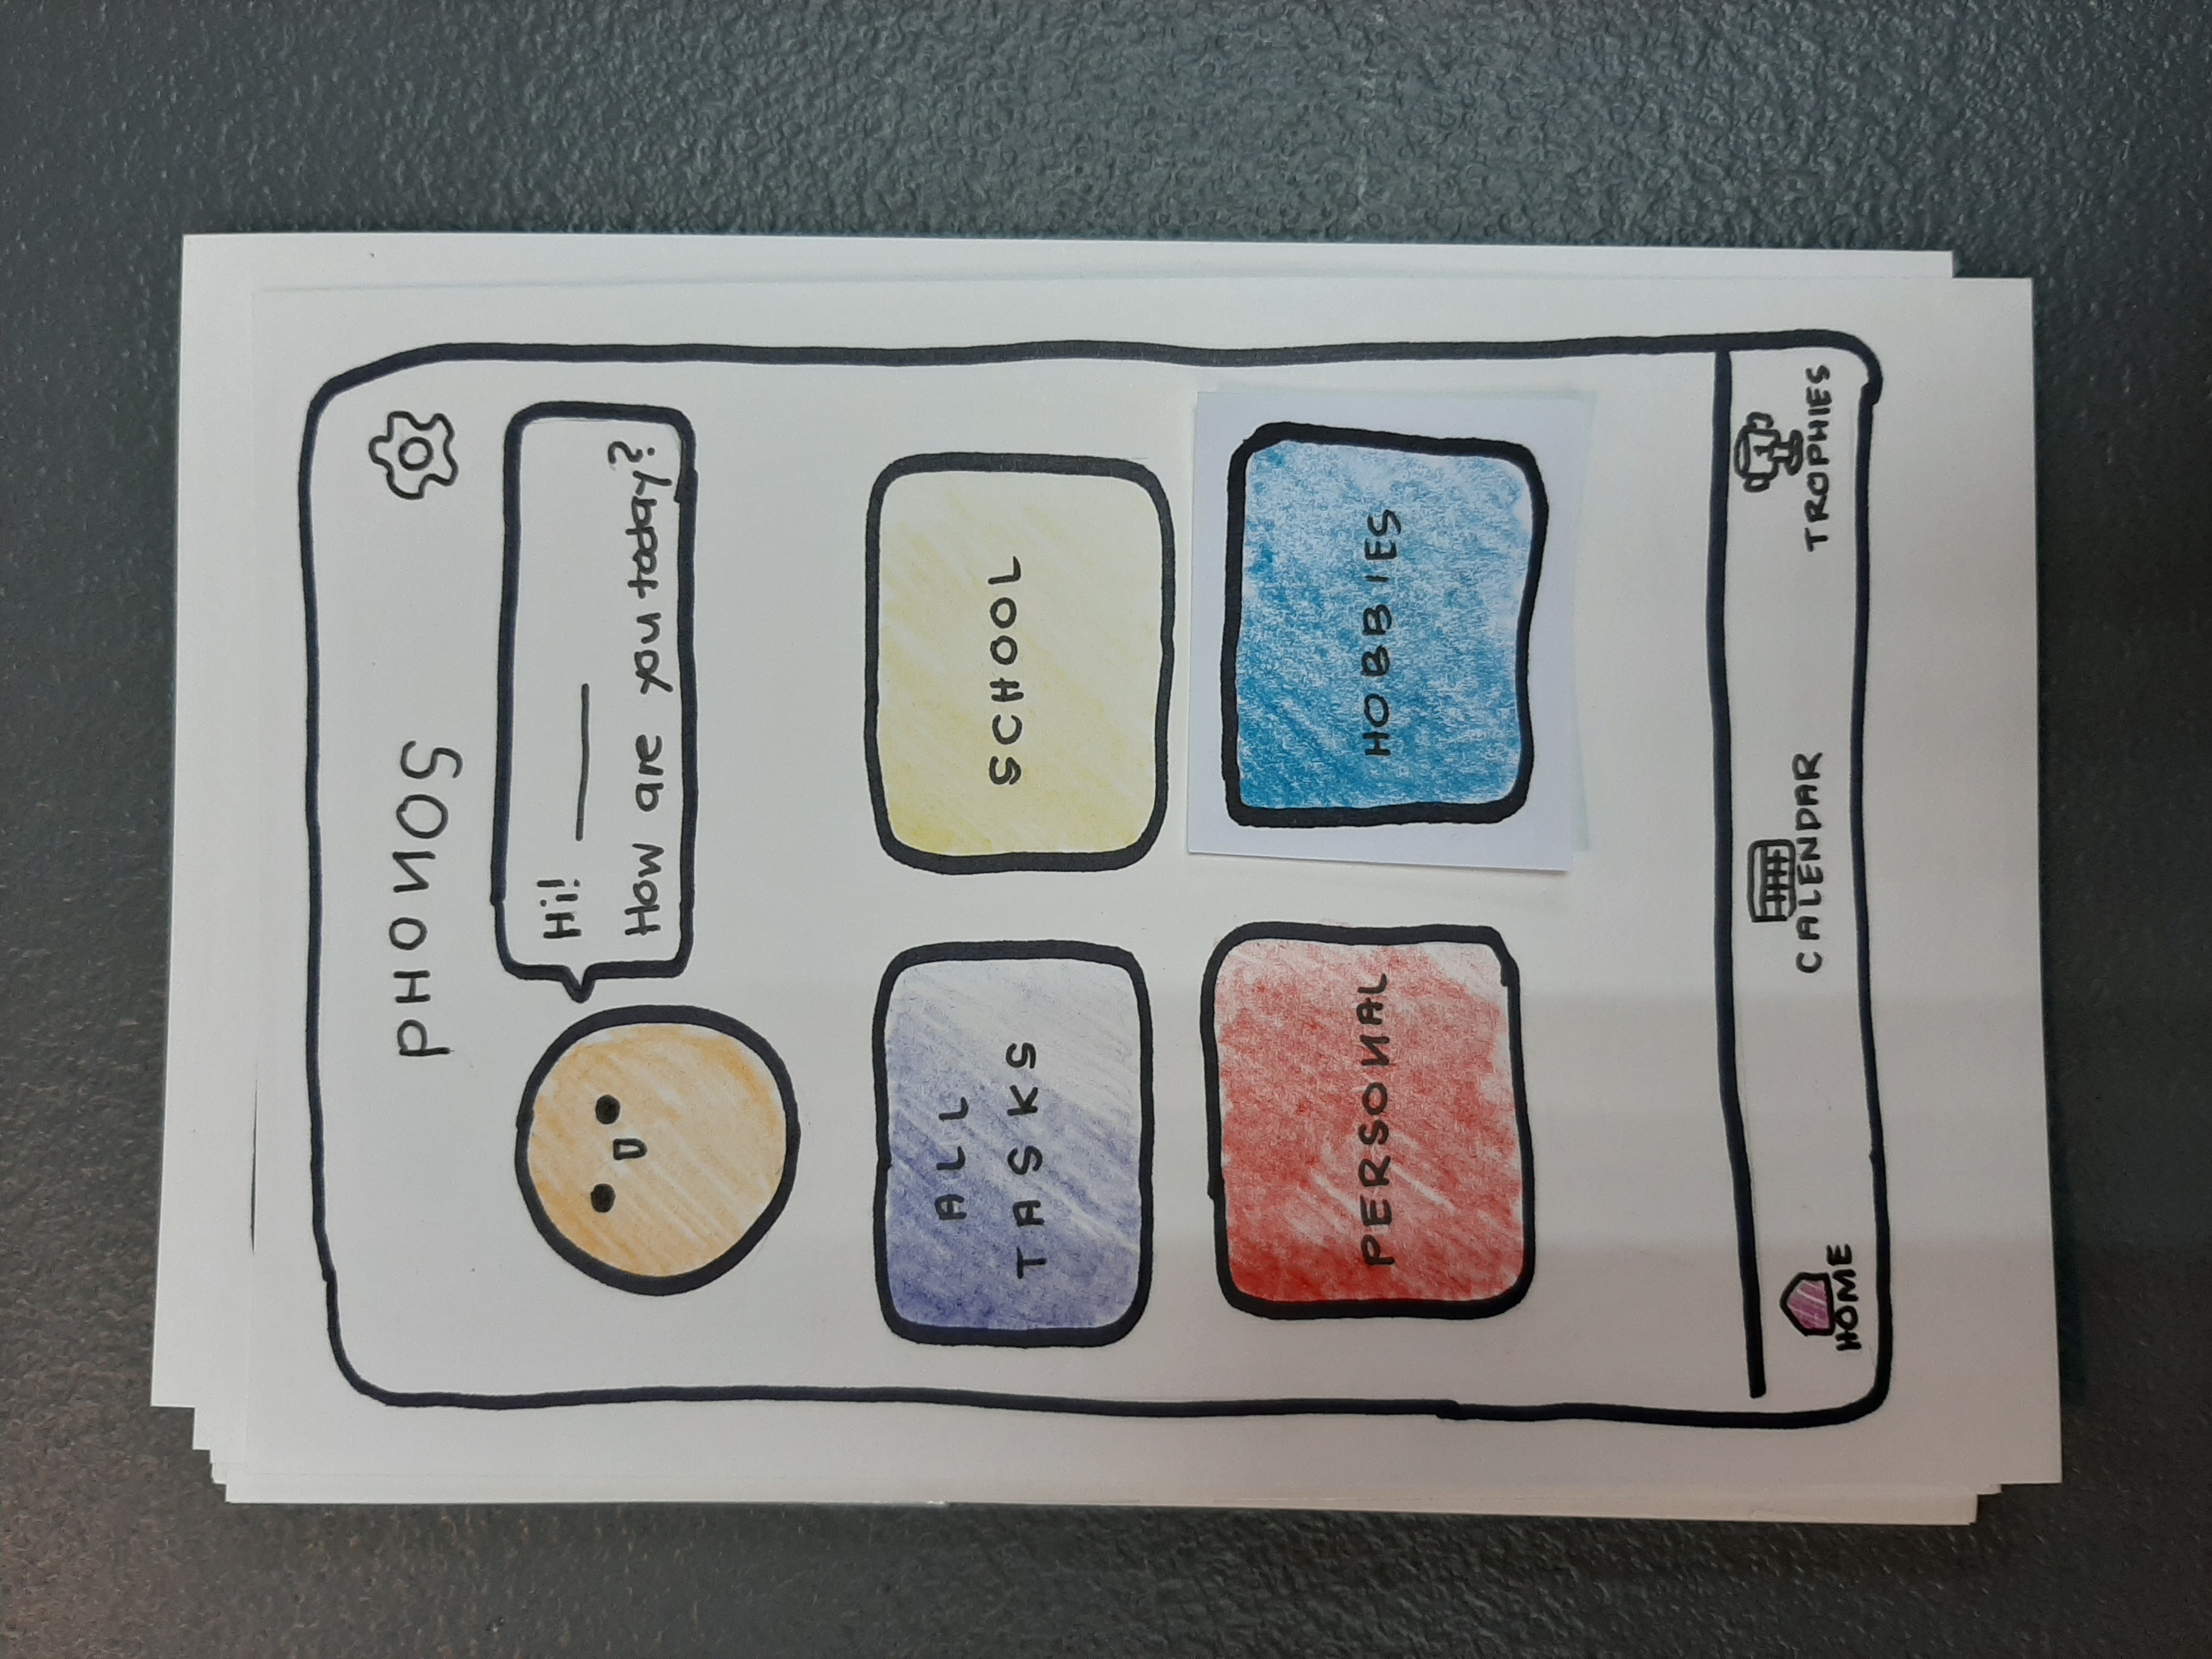 PHONOS
Hi! ____
How are you today?
ALL
TASKS
SCHOOL
PERSONAL
HOBBIES
HOME
CALENDAR
1
TROPHIES